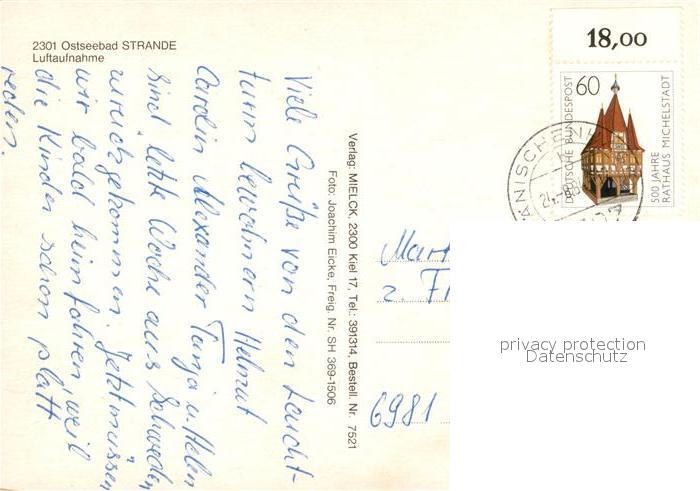 2301 Ostseebad STRANDE
Luftaufnahme
Viele Grüße von den Leucht-
turm bewohnern Helmut
Carolin Alexander Tanja u. Helen
sind letzte Woche aus Schweden
zurückgekommen. Jetzt müssen
wir bald heim fahren weil
die Kinder schon platt
reden.
Verlag: MIELCK, 2300 Kiel 17, Tel.: 391314, Bestell. Nr. 7521
Foto: Joachim Eicke, Freig. Nr. SH 369-1506
18,00
60
DEUTSCHE BUNDESPOST
500 JAHRE
RATHAUS MICHELSTADT
ÄNISCHENH
Mar
z. F
6981
privacy protection
Datenschutz